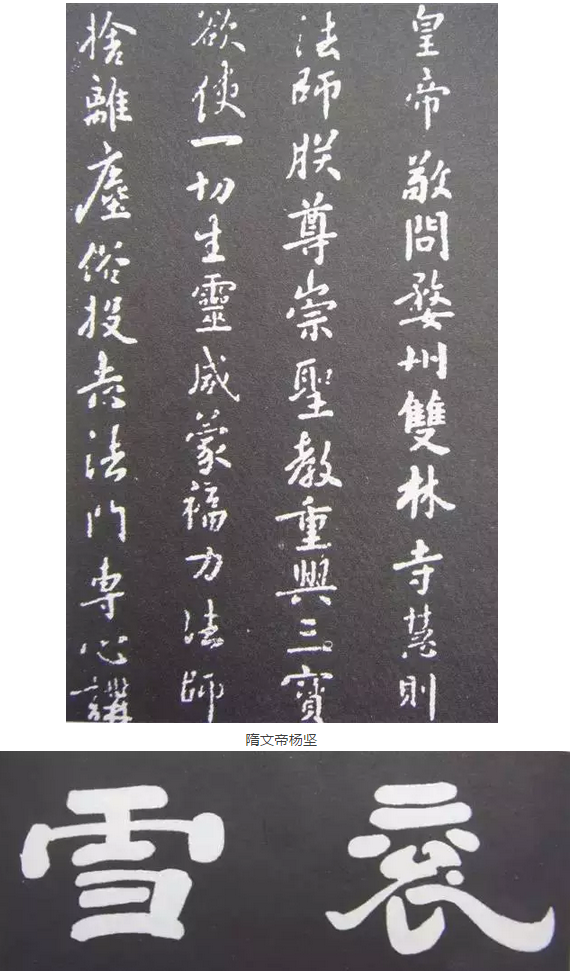 皇帝敬問婺州雙林寺慧則
法師朕尊崇聖教重興三寶
欲使一切生靈咸蒙福力法師
捨離塵俗投志法門專心講
隋文帝杨坚
衮雪